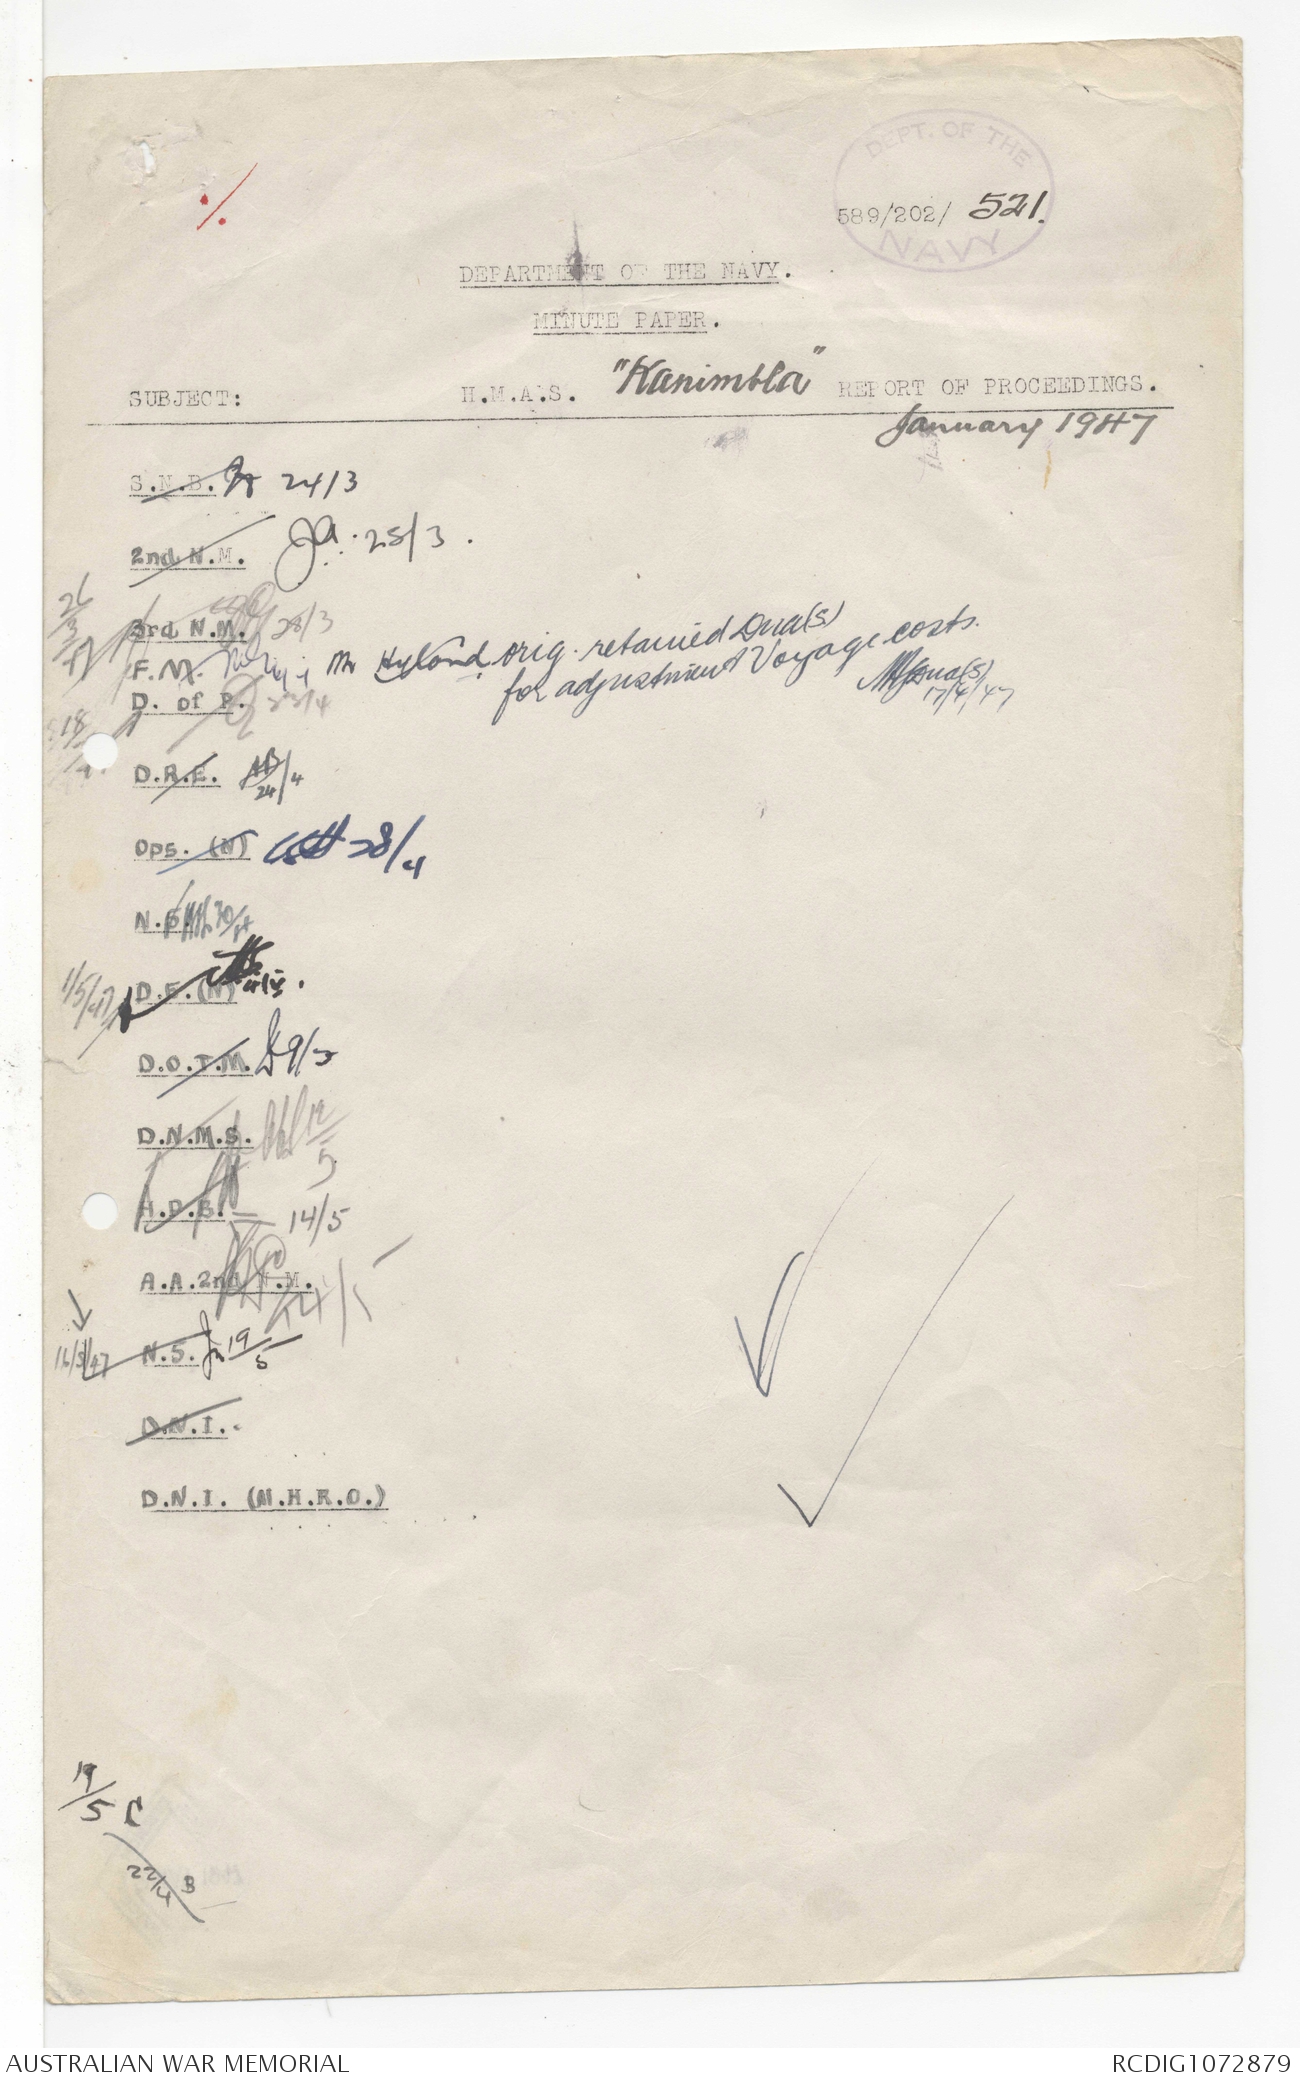 DEPT. OF THE
NAVY
589/202/ 521.
DEPARTMENT OF THE NAVY.
MINUTE PAPER.
SUBJECT: H.M.A.S. "Kanimbla" REPORT OF PROCEEDINGS.
January 1947
S.N.B. 24/3
2nd N.M. 25/3.
26/3
3rd N.M. 28/3
F.M. Mr Hyland. orig. retained DNA(S)
for adjustment Voyage costs.
DNA(S)
17/4/47
D. of P. 23/4
18
D.R.E. 24/4
Ops. (N) 28/4
N.E. 30/4
1/5/47 D.E.(N) 4/5.
D.O.T.M. 9/5
D.N.M.S. 12/5
H.D.B. 14/5
A.A.2nd N.M. 14/5
16/5/47 N.S. 19/5
D.N.I.
D.N.I. (N.H.R.O.)
19/5 C
22/4 B
AUSTRALIAN WAR MEMORIAL RCDIG1072879